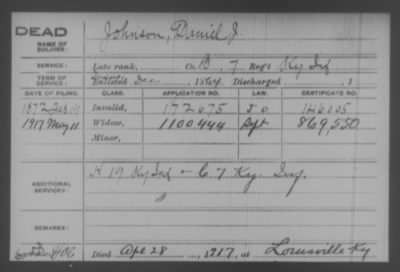 DEAD
Johnson, Daniel J.
NAME OF SOLDIER:
SERVICE: Late rank, Co. B, 7 Reg't Ky Inf
TERM OF SERVICE: Enlisted Dec 1864, Discharged , 1
DATE OF FILING. CLASS. APPLICATION NO. LAW. CERTIFICATE NO.
1872 Feb 19 Invalid, 172075 146005
1917 May 11 Widow, 1100444 Sept 869,550
Minor,
ADDITIONAL SERVICES: K 19 Ky Inf - C. 7 Ky. Inf.
REMARKS:
Died Apr 28 1917, at Louisville Ky